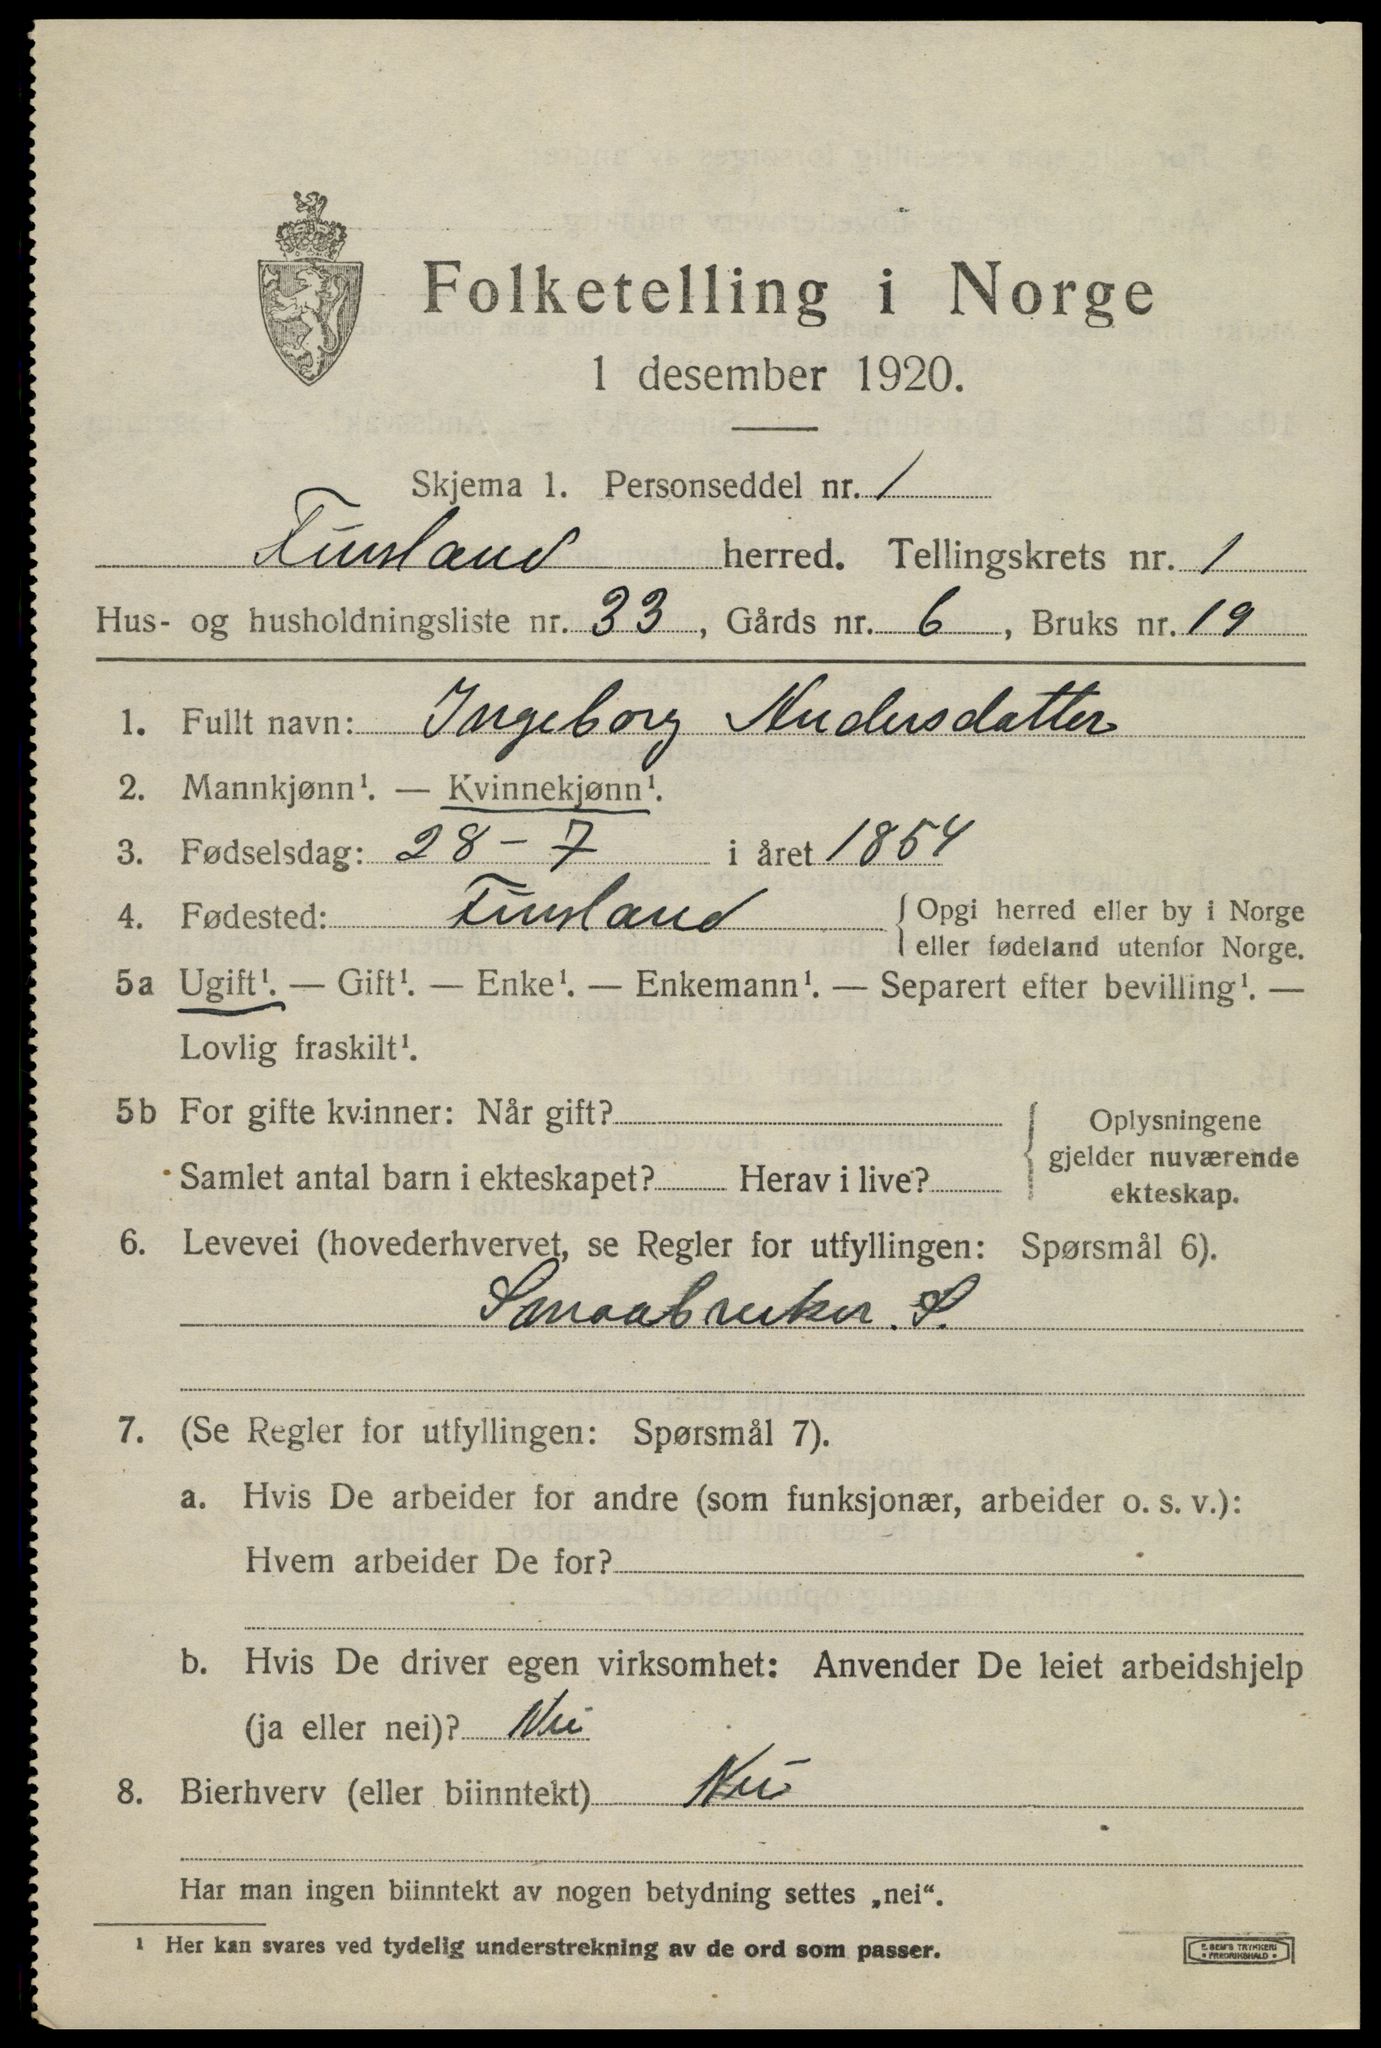 Folketelling i Norge
1 desember 1920.
Skjema 1. Personseddel nr. 1
Finsland herred. Tellingskrets nr. 1
Hus- og husholdningsliste nr. 33, Gårds nr. 6, Bruks nr. 19
1. Fullt navn: Ingeborg Andersdatter
2. Mannkjønn¹. — Kvinnekjønn¹.
3. Fødselsdag: 28-7 i året 1854
4. Fødested: Finsland { Opgi herred eller by i Norge
eller fødeland utenfor Norge.
5a Ugift¹. — Gift¹. — Enke¹. — Enkemann¹. — Separert efter bevilling¹. —
Lovlig fraskilt¹.
5b For gifte kvinner: Når gift?
Samlet antal barn i ekteskapet? Herav i live?
{ Oplysningene
gjelder nuværende
ekteskap.
6. Levevei (hovederhvervet, se Regler for utfyllingen: Spørsmål 6).
Smaabruker. S.
7. (Se Regler for utfyllingen: Spørsmål 7).
a. Hvis De arbeider for andre (som funksjonær, arbeider o. s. v.):
Hvem arbeider De for?
b. Hvis De driver egen virksomhet: Anvender De leiet arbeidshjelp
(ja eller nei)? Nei
8. Bierhverv (eller biinntekt) Nei
Har man ingen biinntekt av nogen betydning settes „nei“.
¹ Her kan svares ved tydelig understrekning av de ord som passer.
E. SEM'S TRYKKERI
• FREDRIKSHALD •